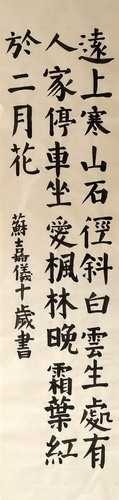 遠上寒山石徑斜白雲生處有
人家停車坐愛楓林晚霜葉紅
於二月花
蘇嘉儀十歲書